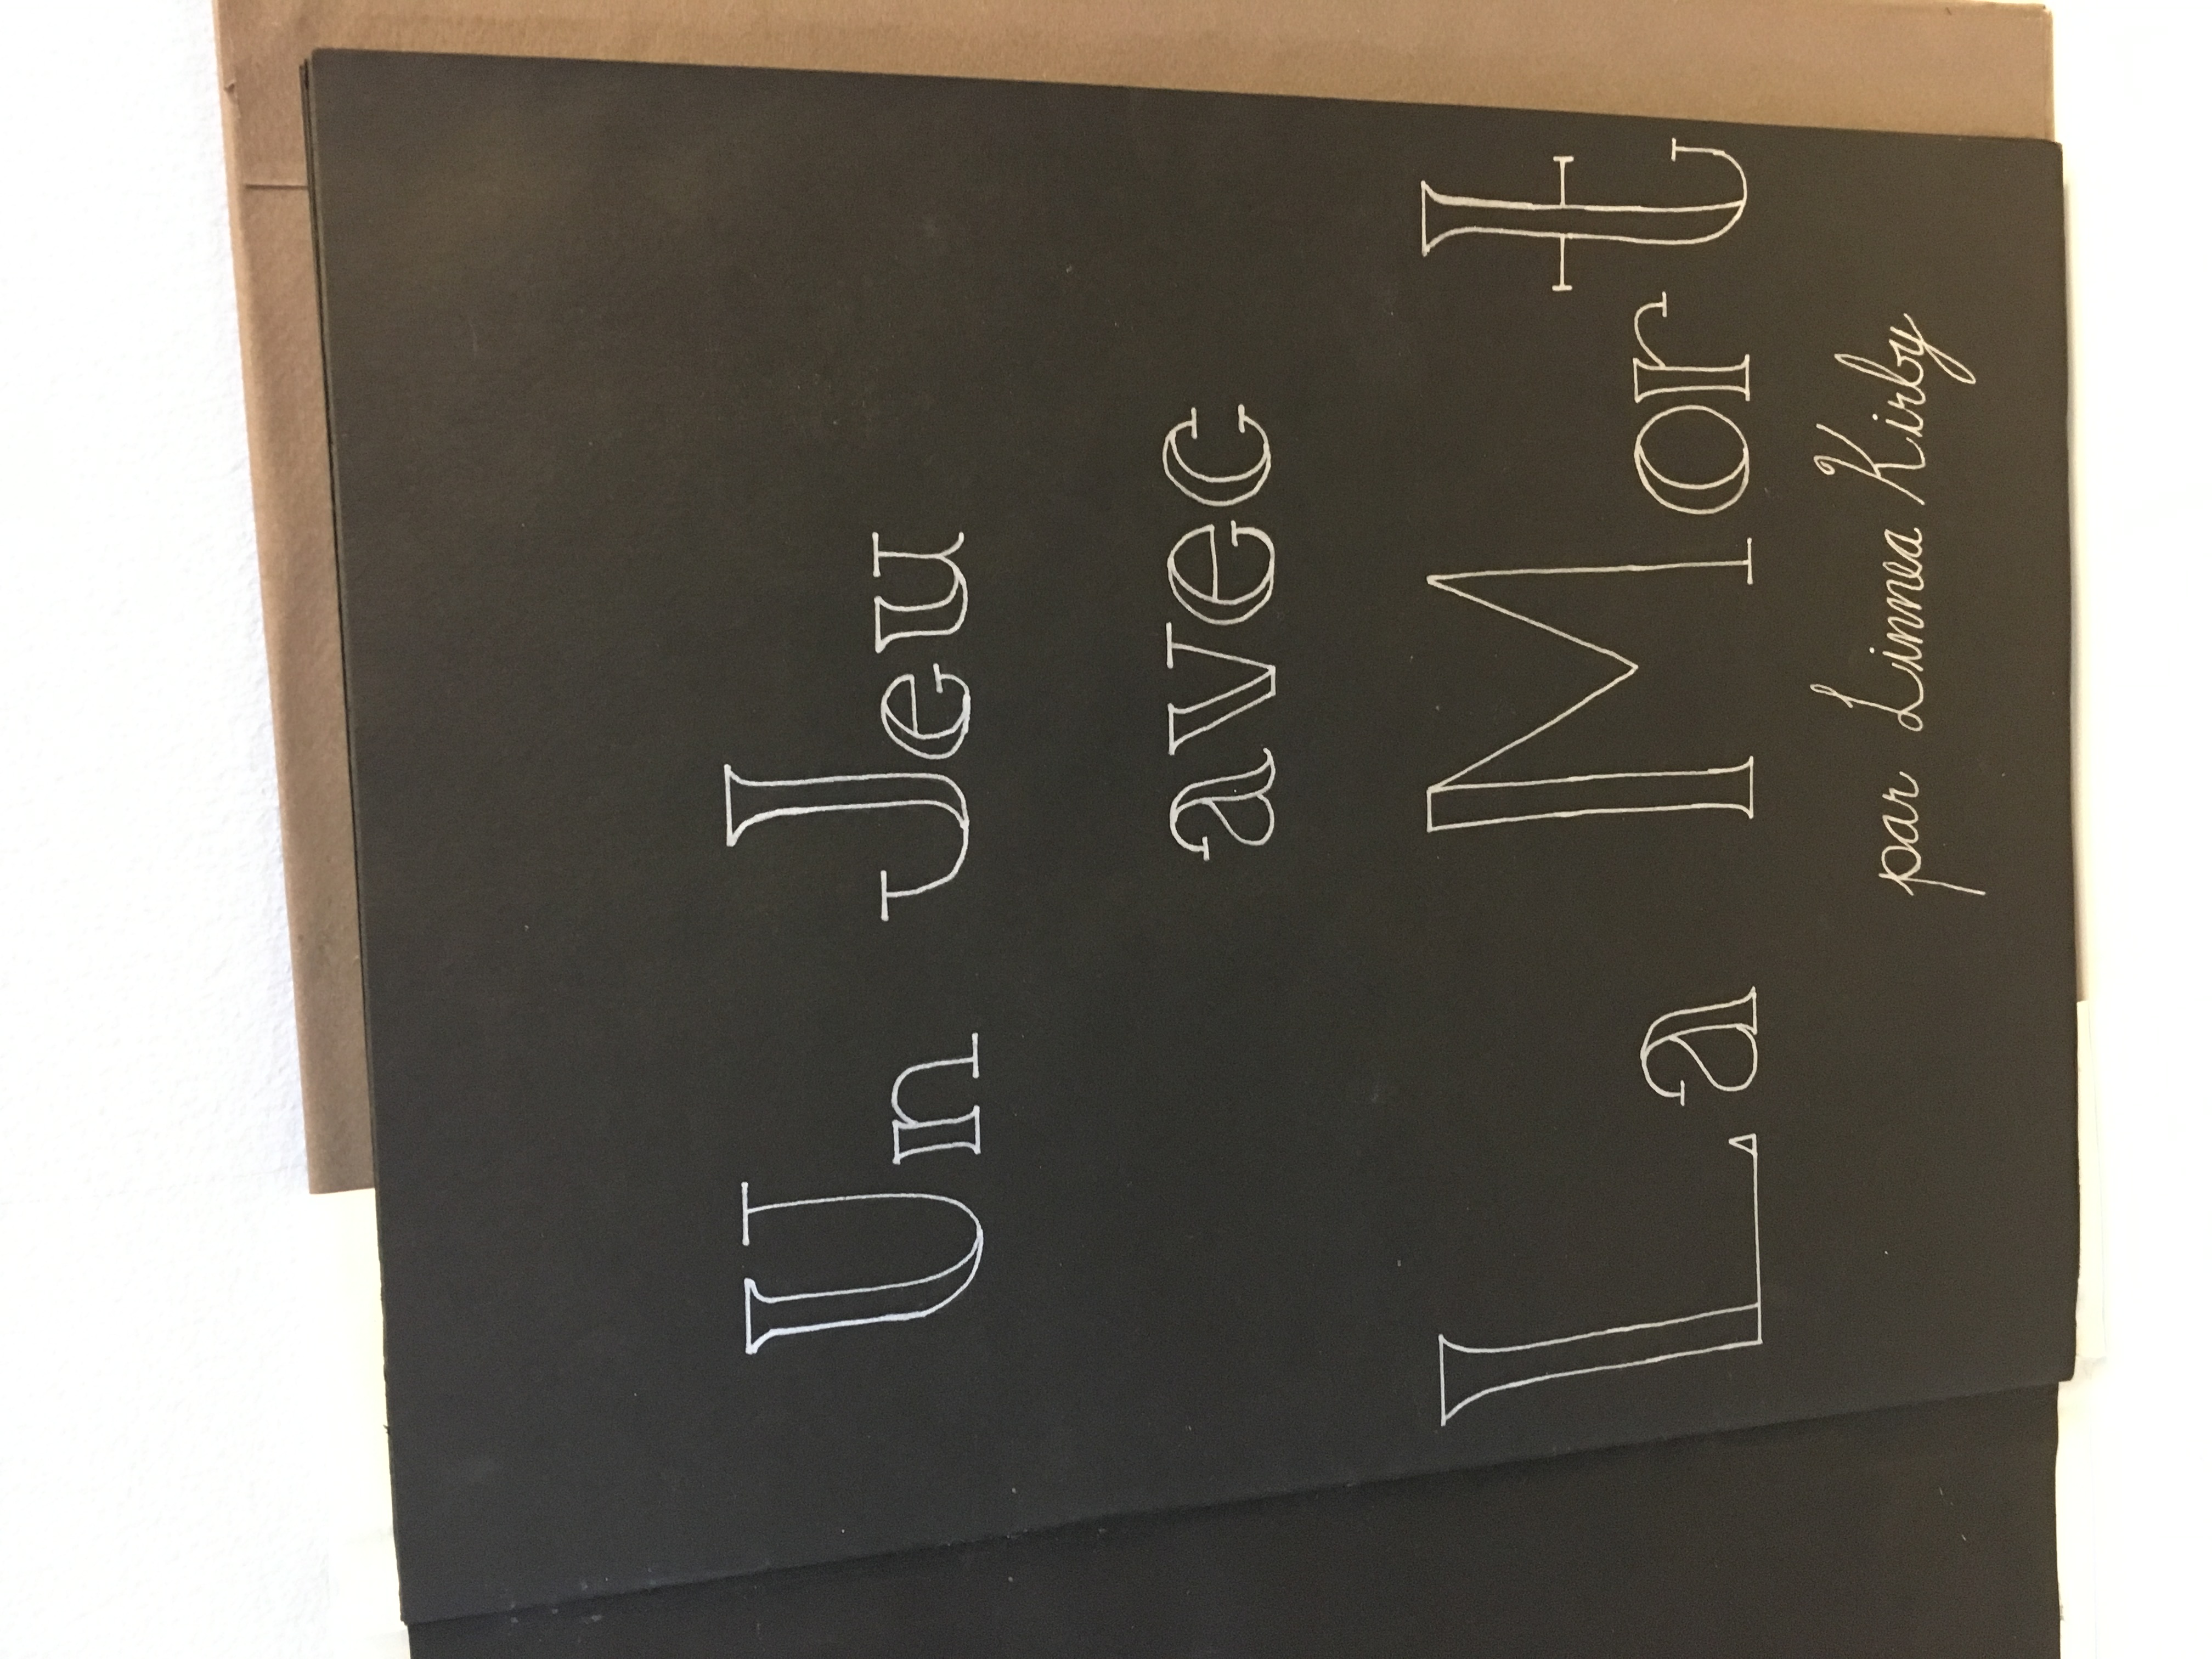 Un Jeu
avec
La Mort
par Linnea Kirby